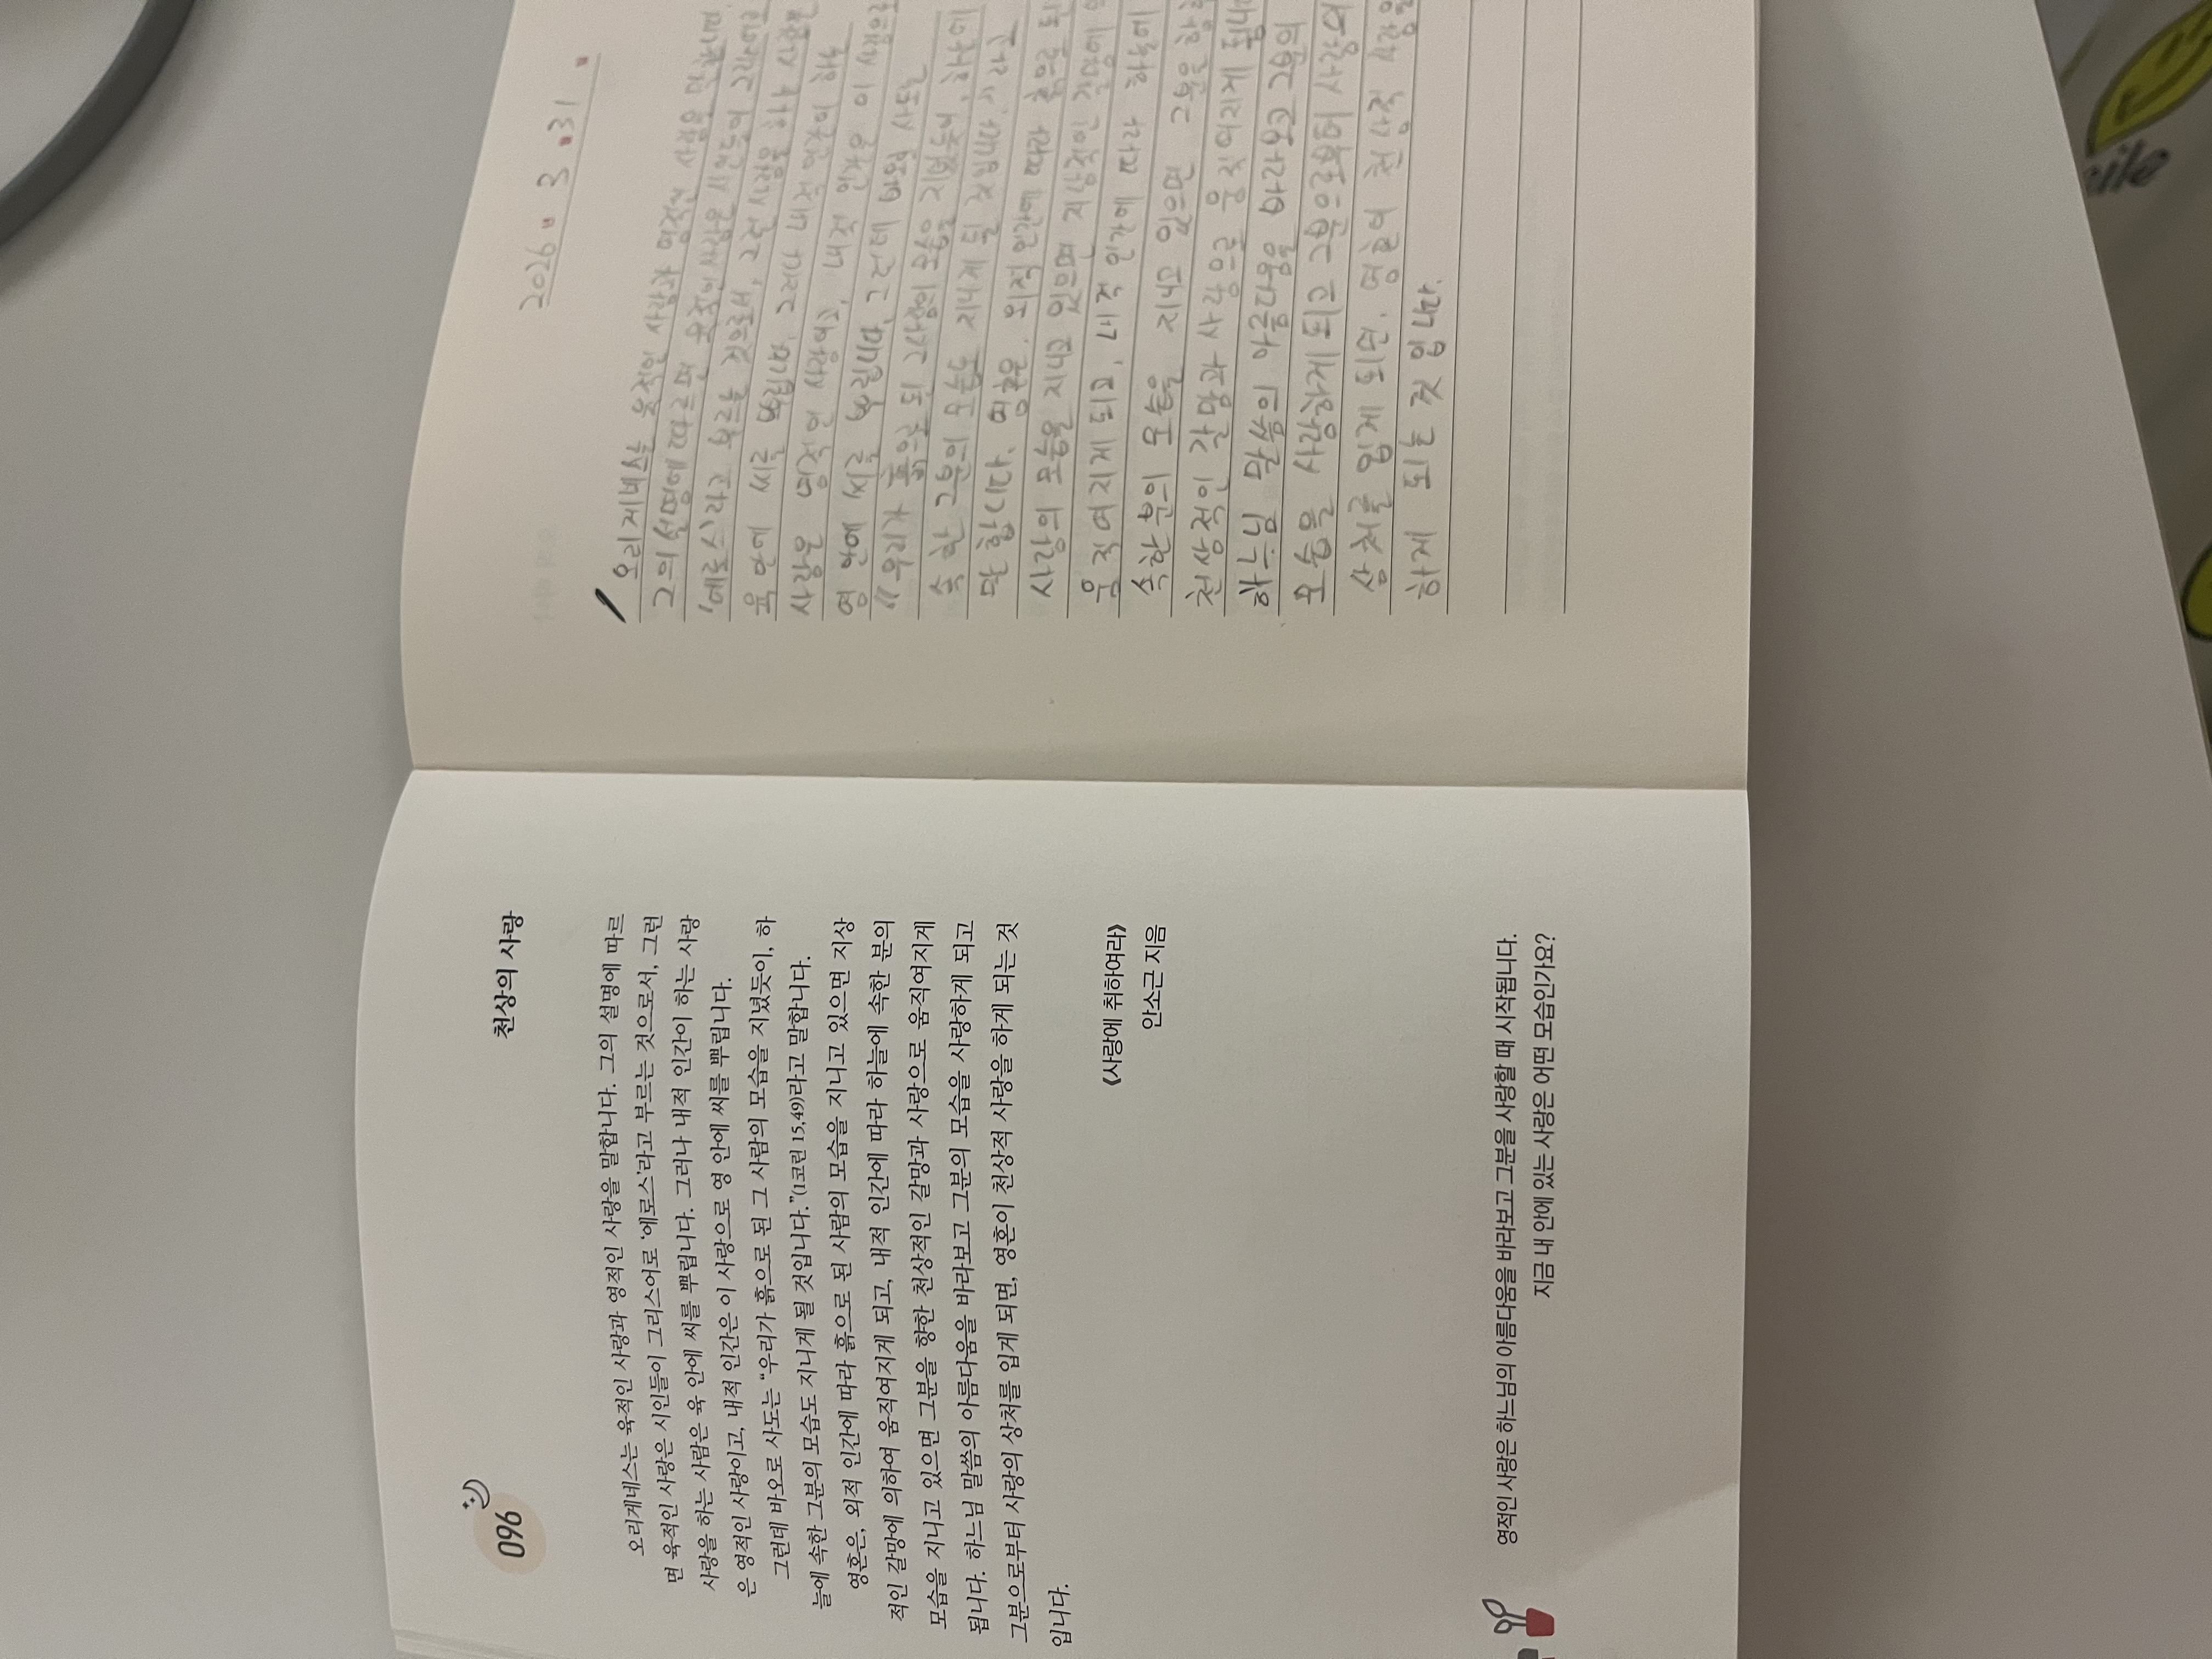 096
천상의 사랑
오리게네스는 육적인 사랑과 영적인 사랑을 말합니다. 그의 설명에 따르
면 육적인 사랑은 시인들이 그리스어로 ‘에로스’라고 부르는 것으로서, 그런
사랑을 하는 사람은 육 안에 씨를 뿌립니다. 그러나 내적 인간이 하는 사랑
은 영적인 사랑이고, 내적 인간은 이 사랑으로 영 안에 씨를 뿌립니다.
그런데 바오로 사도는 “우리가 흙으로 된 그 사람의 모습을 지녔듯이, 하
늘에 속한 그분의 모습도 지니게 될 것입니다.”(1코린 15,49)라고 말합니다.
영혼은, 외적 인간에 따라 흙으로 된 사람의 모습을 지니고 있으면 지상
적인 갈망에 의하여 움직여지게 되고, 내적 인간에 따라 하늘에 속한 분의
모습을 지니고 있으면 그분을 향한 천상적인 갈망과 사랑으로 움직여지게
됩니다. 하느님 말씀의 아름다움을 바라보고 그분의 모습을 사랑하게 되고
그분으로부터 사랑의 상처를 입게 되면, 영혼이 천상적 사랑을 하게 되는 것
입니다.
《사랑에 취하여라》
안소근 지음
영적인 사랑은 하느님의 아름다움을 바라보고 그분을 사랑할 때 시작됩니다.
지금 내 안에 있는 사랑은 어떤 모습인가요?
2026. 3. 31.
오리게네스는 육적인 사랑과 영적인 사랑을
그의 설명에 따르면 육적인 사랑은 시인들이
'에로스'라고 부르는 것으로서, 그런 사랑을 하는
육 안에 씨를 뿌립니다. 그러나 내적 인간이 하는
사랑은 영적인 사랑이고, 내적 인간은 이 사랑으로
영 안에 씨를 뿌립니다. 그런데 바오로 사도는
"우리가 흙으로 된 그 사람의 모습을 지녔듯이, 하늘에
속한 그분의 모습도 지니게 될 것입니다."라고
말합니다. 영혼은, 외적 인간에 따라 흙으로 된
사람의 모습을 지니고 있으며 지상적인 갈망에
움직여지게 되고, 내적 인간에 따라 하늘에
속한분의 모습을 지니고 있으면 그분을 향한
천상적인 갈망과 사랑으로 움직여지게 됩니다
하느님 말씀의 아름다움을 바라보고 그분의
모습을 사랑하게 되고 그분으로부터 사랑의
상처를 입게 되면, 영혼이 천상적 사랑을
하게 되는 것입니다.